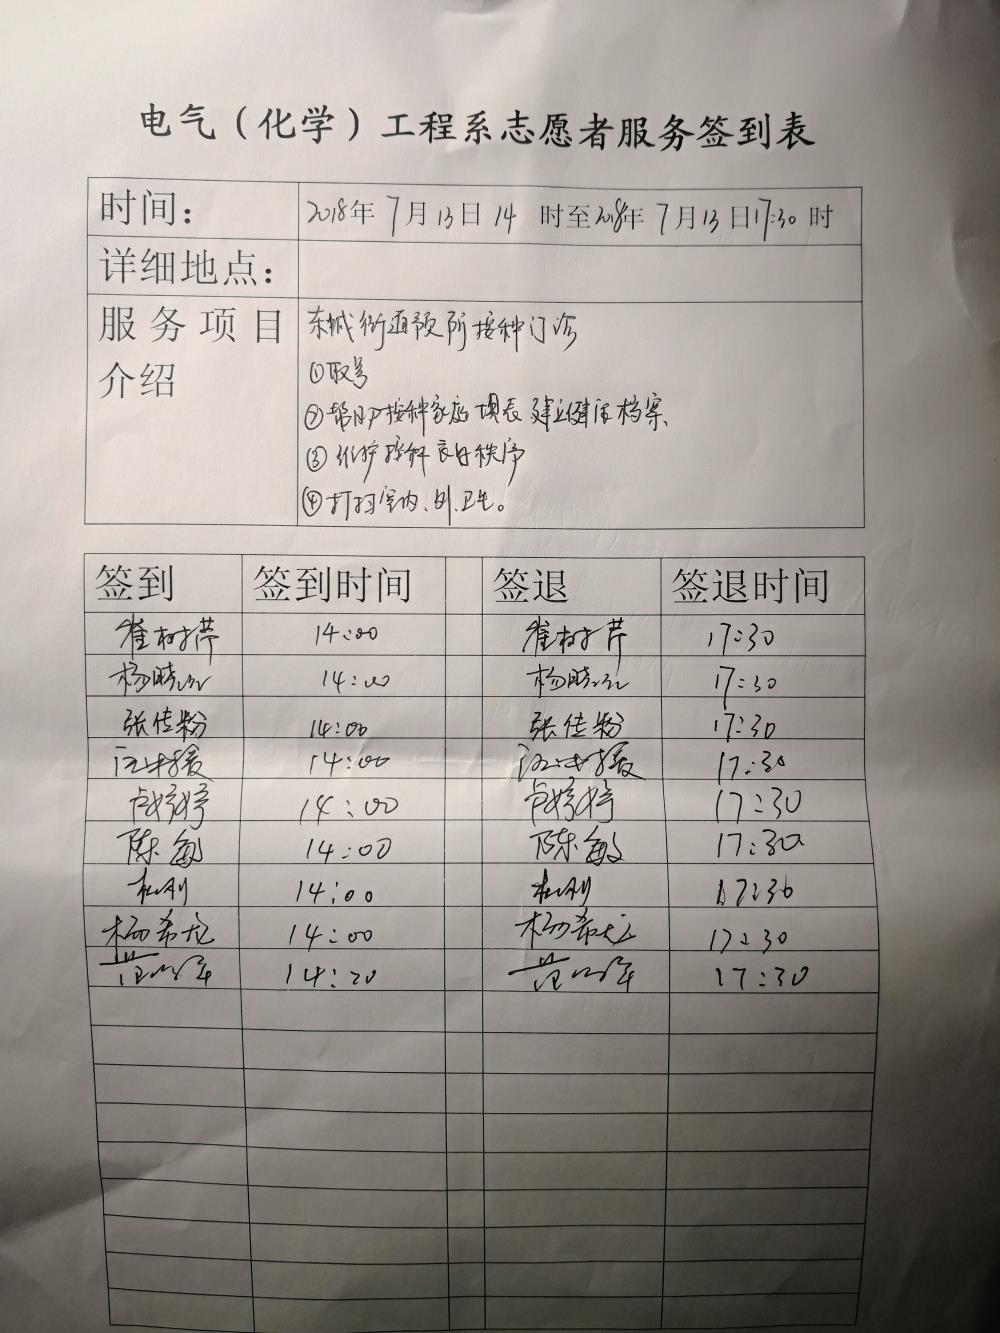 电气（化学）工程系志愿者服务签到表
时间： 2018年 7月13日 14 时至2018年 7月13日17:30时
详细地点：
服务项目介绍
东城街道预防所接种门诊
①取号
②帮助接种家庭填表 建立健康档案
③维护接种良好秩序
④打扫室内、外卫生。
签到 签到时间 签退 签退时间
崔树芹 14:00 崔树芹 17:30
杨晓 14:00 杨晓 17:30
张佳粉 14:00 张佳粉 17:30
14:00 17:30
卢婷婷 14:00 卢婷婷 17:30
陈敏 14:00 陈敏 17:30
杜刚 14:00 杜刚 17:30
杨希龙 14:00 杨希龙 17:30
范 14:20 范 17:30